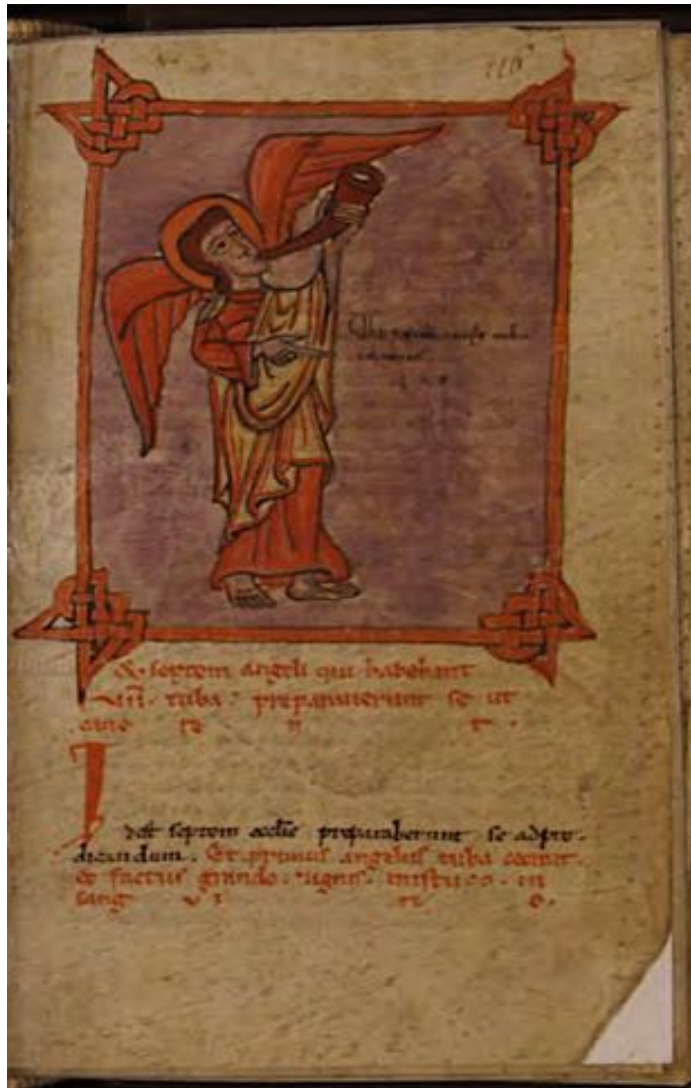 & septem angeli qui habebant
VII. tuba. preparaverunt se ut
cane re n t.
I
dest septem ecclie preparaberunt se ad pre.
dicandum. Et primus angelus tuba cecinit.
et factus grando. ignis. mistus. in
sang u i n e.